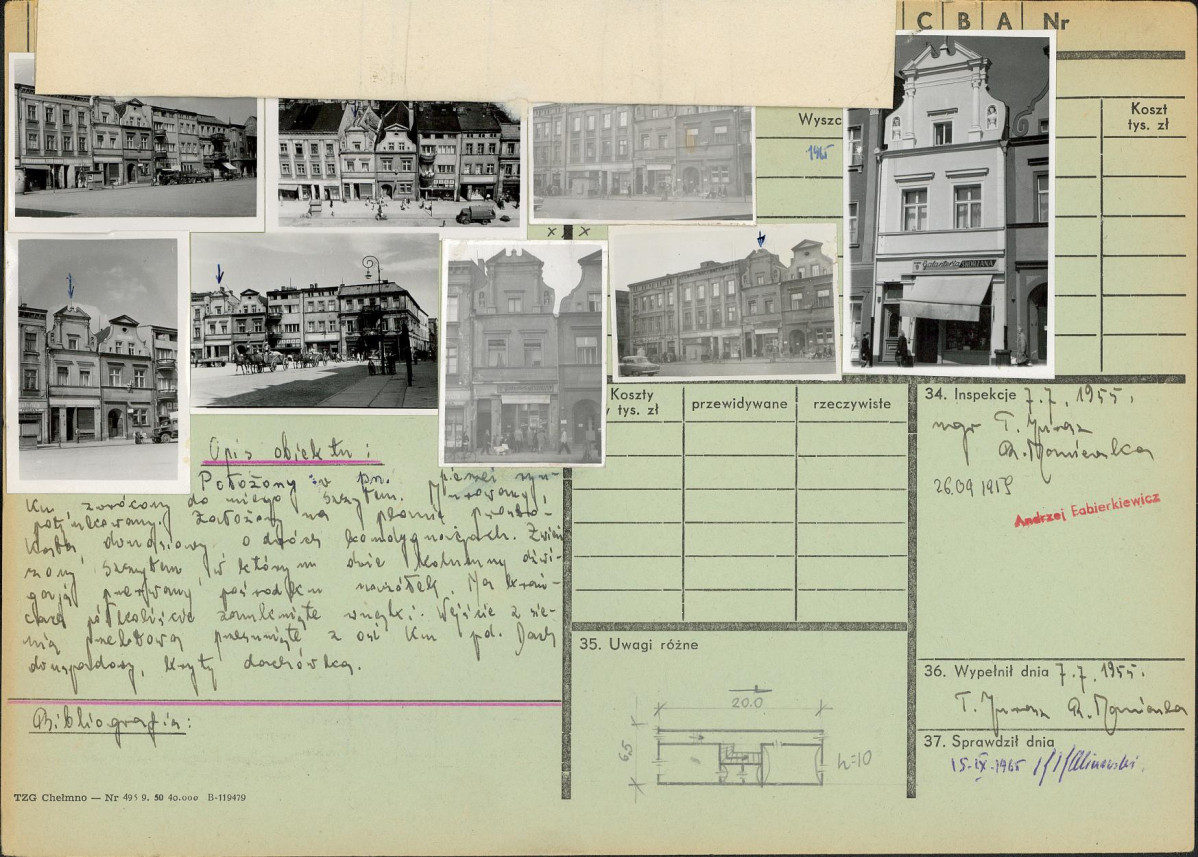 C B A Nr
Wyszc
1965
Koszt
tys. zł
x x
Koszty
tys. zł
przewidywane
rzeczywiste
34. Inspekcje 7.7.1955.
mgr T.
26.09.1959
Andrzej Fabierkiewicz
Opis obiektu:
Położony w pn. pierzei ryn-
ku zwrócony do niego szczytem. Murowany,
potynkowany. Założony na planie prosto-
kąta, dwuosiowy o dwóch kondygnacjach. Zwień-
czony szczytem, w którym dwie kolumny dźwi-
gają przerwany pośrodku naczółek. Na krań-
cach półkoliście zamknięte wnęki. Wejście z sie-
nią przelotową przesunięte z osi ku pd. Dach
dwuspadowy, kryty dachówką.
Bibliografia:
35. Uwagi różne
20.0
6,5
h=10
36. Wypełnił dnia 7.7.1955.
T.
37. Sprawdził dnia
15-IX-1965
TZG Chełmno — Nr 495 9. 50 40.000 B-119479